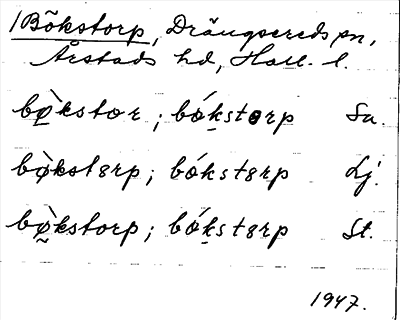 /Bökstorp, Drängsereds sn,
Årstads hd, Hall. l.
bø̀kstor; bǿkstorp Sa.
bø̀kstørp; bókstørp Lj.
bø̀kstorp; bǿkstørp St.
1947.